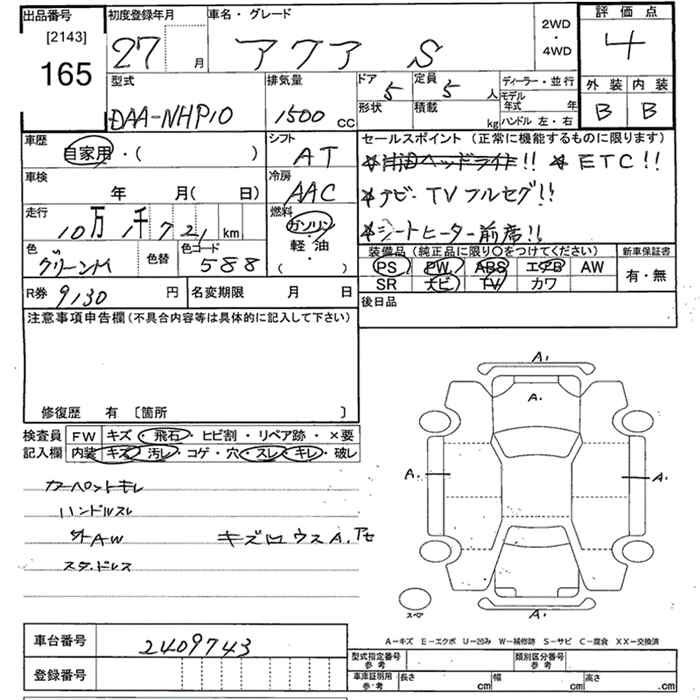 出品番号 初度登録年月 車名・グレード 2WD・4WD 評価点
[2143] 165 27 月 アクア S 4
型式 排気量 ドア 5 定員 5 人 ディーラー・並行 外装 内装
DAA-NHP10 1500 cc 形状 積載 kg モデル年式 年 B B
ハンドル 左・右
車歴 シフト セールスポイント (正常に機能するものに限ります)
自家用・( ) AT ETC!!
車検 冷房 ナビ・TVフルセグ!!
年 月( 日) AAC シートヒーター前席!!
走行 10万1千721 km 燃料 ガソリン・軽油・( )
色 グリーンM 色替 色コード 588
装備品 (純正品に限り○をつけてください) 新車保証書
PS PW ABS エアB AW 有・無
SR ナビ TV カワ
R券 9130 円 名変期限 月 日 後日品
注意事項申告欄(不具合内容等は具体的に記入して下さい)
修復歴 有 [箇所 ]
検査員 FW キズ・飛石・ヒビ割・リペア跡・×要
記入欄 内装 キズ・汚レ・コゲ・穴・スレ・キレ・破レ
カーペットキレ
ハンドルスレ
外AW キズ
スタ.ドレス
A.
A.
A.
A.
A.
スペア
A-キズ E-エクボ U-凹み W-補修跡 S-サビ C-腐食 XX-交換済
車台番号 2409743
型式指定番号 参考 類別区分番号 参考
登録番号
車庫証明用 参考 長さ cm 幅 cm 高さ .cm